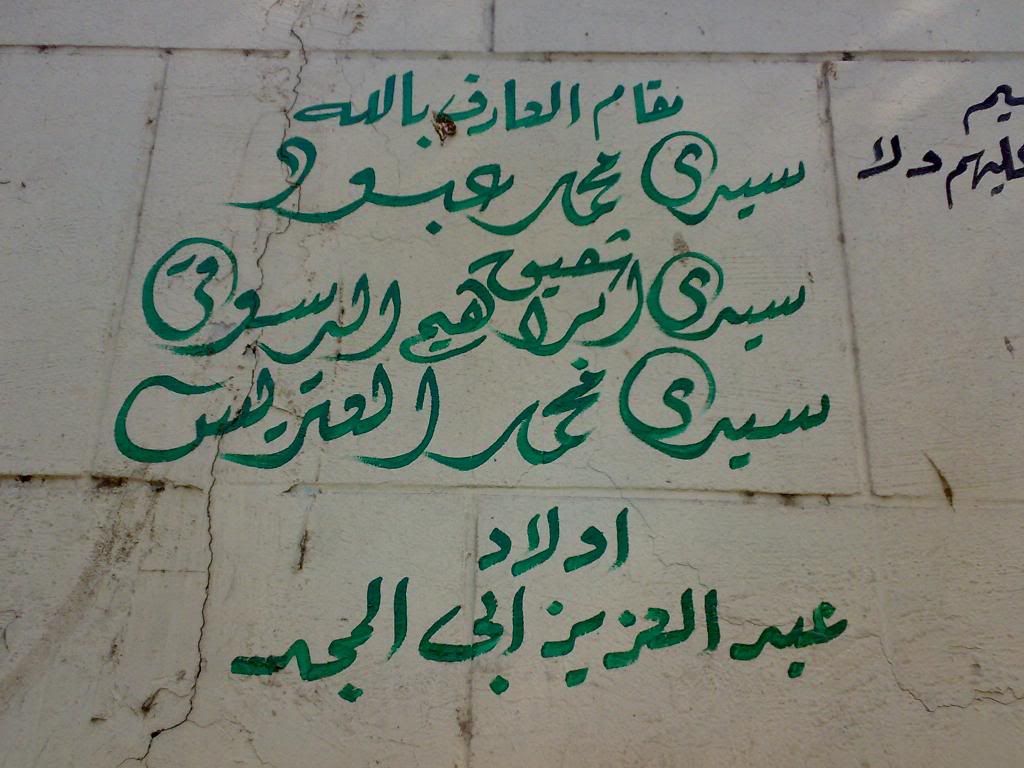 مقام العارف بالله
سيدى محمد عبود
شقيق
سيدى ابراهيم الدسوقى
سيدى محمد العتريس
اولاد
عبد العزيز ابى المجد
يم
عليهم ولا